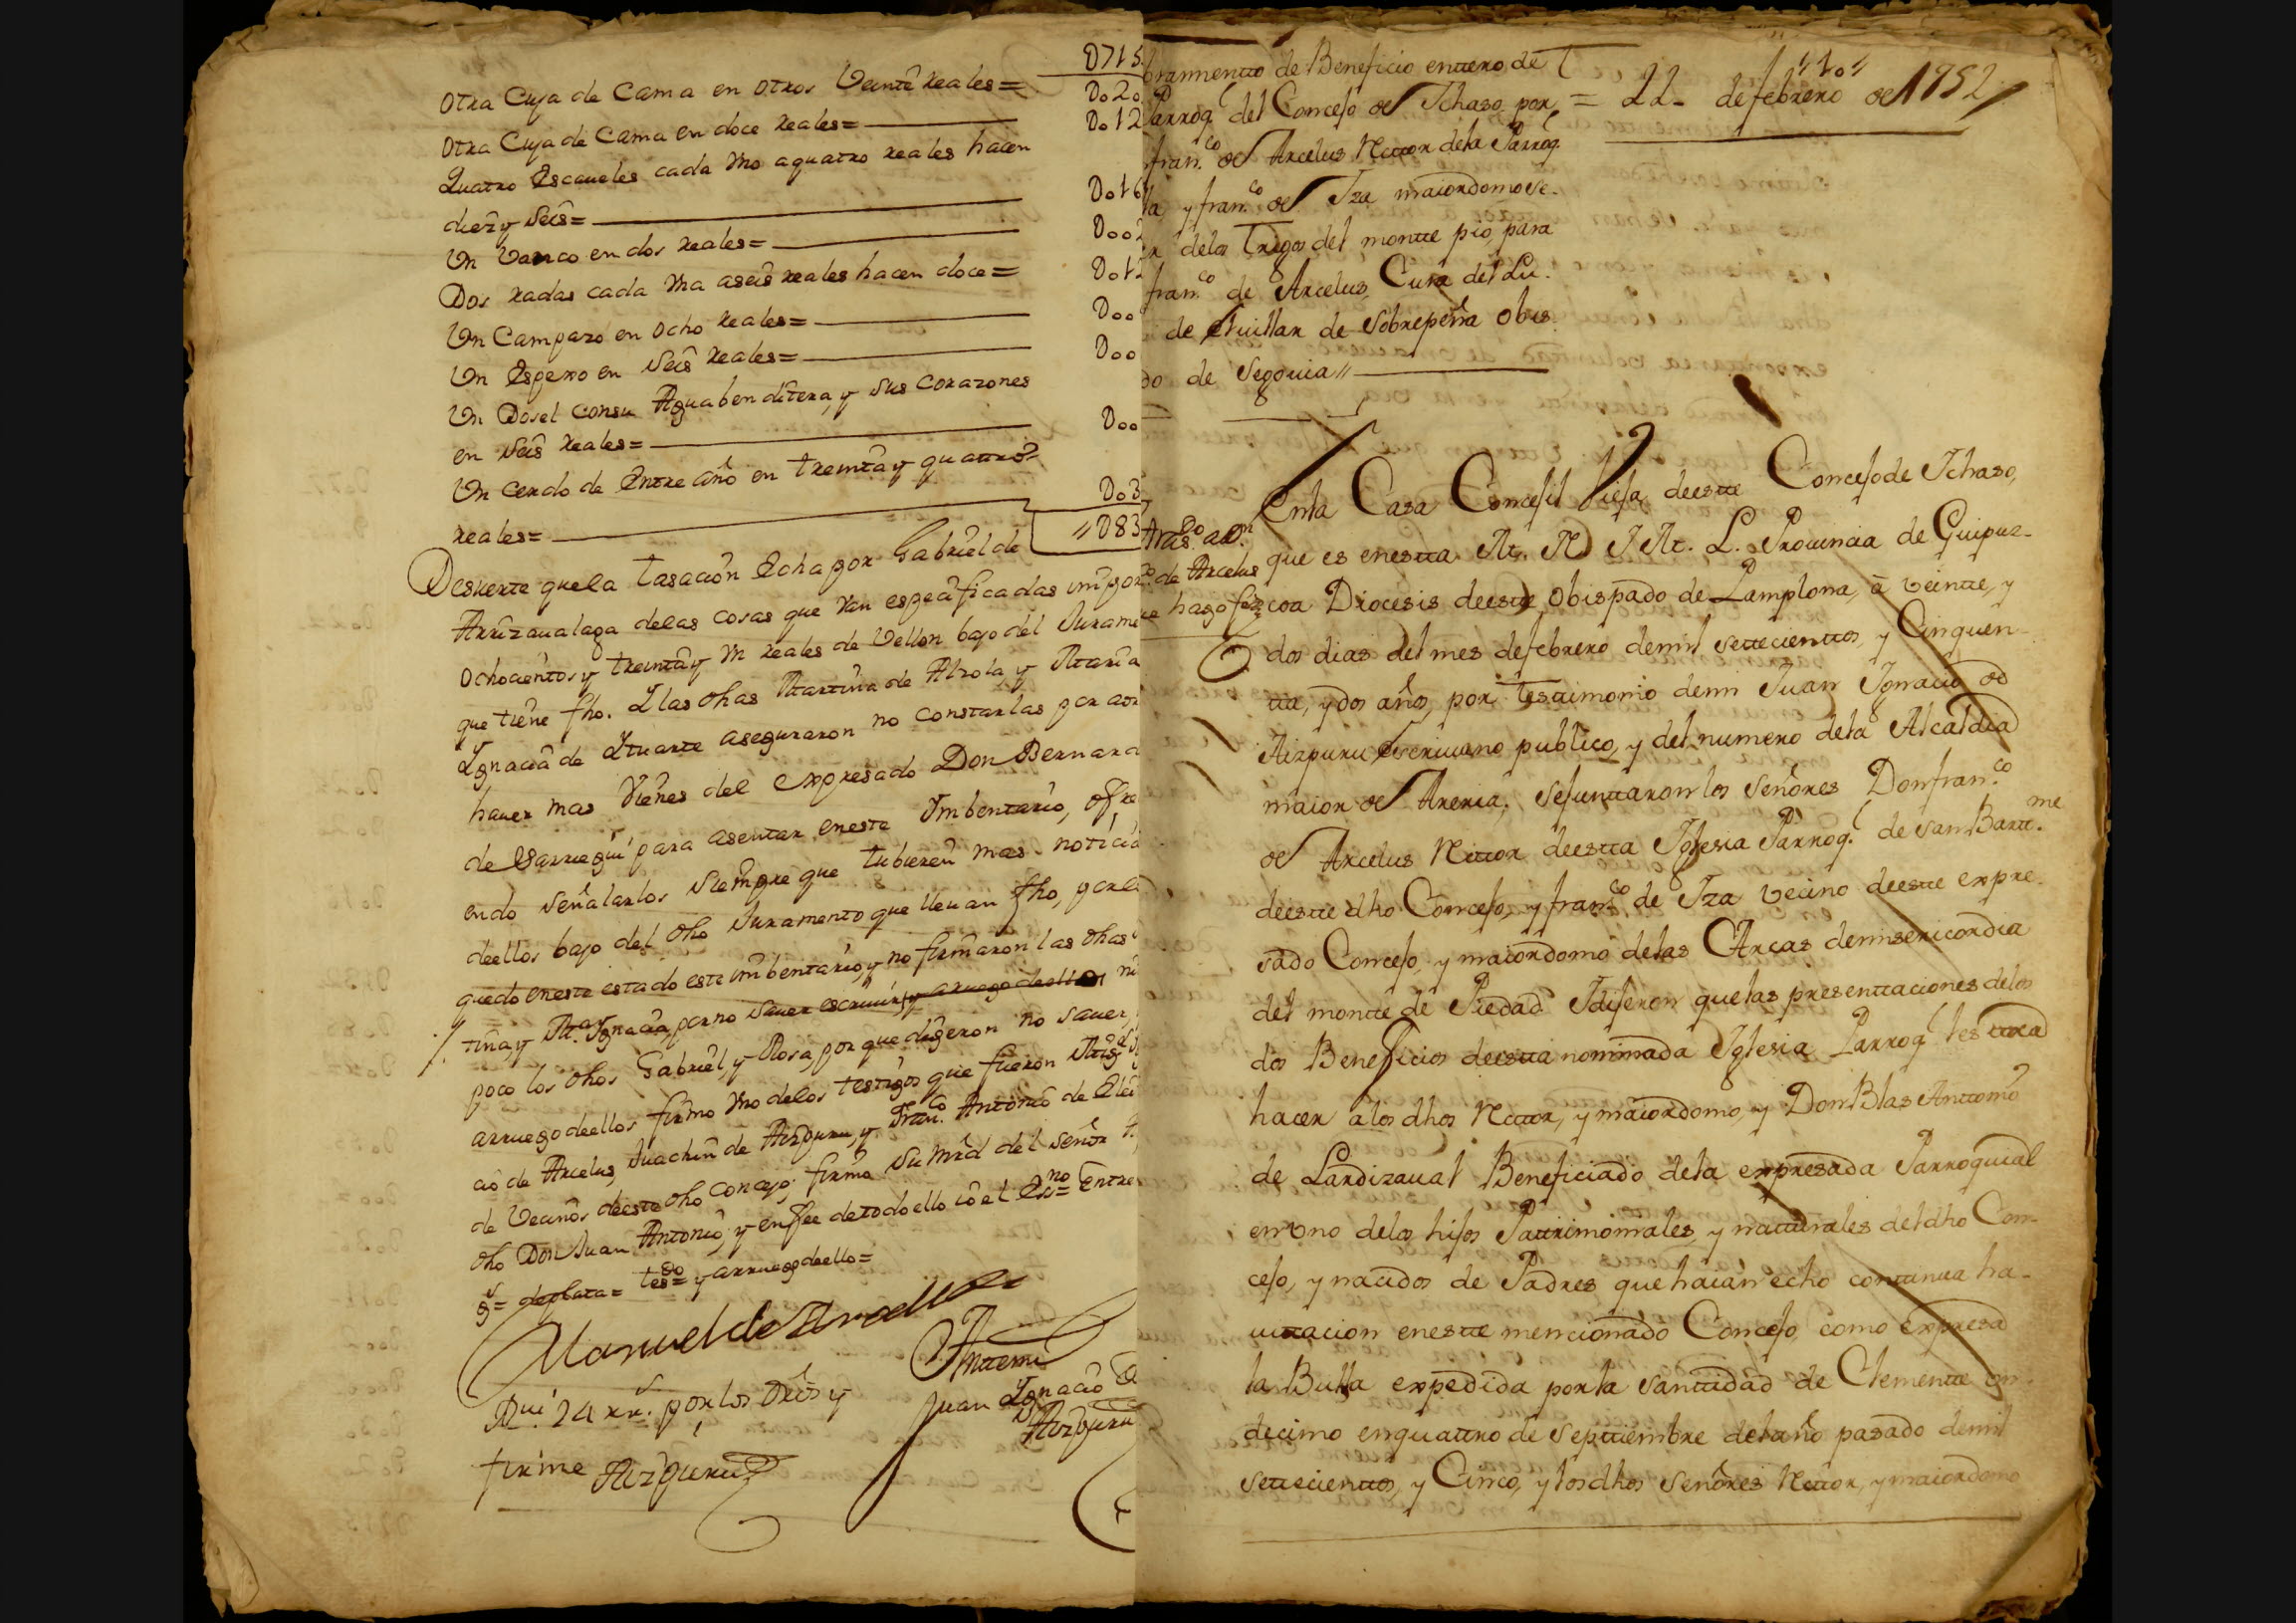 D715
Otra Cuja de Cama en otros Veinte Reales= Do2o
Otra Cuja de Cama en doce Reales= Do12
Quatro Escaueles cada Vno a quatro reales hacen
diez y Seis= Do16
Un Vanco en dos Reales= Doo2
Dos radas cada Vna a seis reales hacen doce= Do12
Un Camparo en ocho Reales= Doo
Un Espexo en Seis Reales= Doo
Un Dosel consu Aguabenditera, y sus Corazones
en Seis Reales= Doo
Un cerdo de Entre año en treinta y quattro
Reales= Do3
"D83
Desuerte quela tasacion Echa por Gabriel de
Arrizaualaga delas cosas que Van especificadas impor
ochocientos y treinta y Vn reales de Vellon bajo del Jurame
que tiene fho. Y las dhas Martina de Alzola, y Maria
Ygnacia de Ytuarte aseguraron no constarlas por aor
hauer mas Vienes del expresado Don Bernard
de Barruegui para asentar eneste Ymbentario, ofre
endo señalarlos siempre que tubieren mas noticia
deellos bajo del dho Juramento que lleuan fho, parla
quedo eneste estado este imbentario, y no firmaron las dhas
tina, y Ma. Ygnacia, por no sauer escriuir, y arruego deellos ni
poco los dhos Gabriel, y Rosa, por que digeron no sauer,
arruego deellos firmo Vno delos testigos que fueron
cio de Arcelus, Juachin de Aizpuru, y Fran.co Antonio de
de Vecinos deeste dho concejo; firmo su Mrd del señor A.
dho Don Juan Antonio, y en fee de todo ello io el Esno= Entre
= deplata= tesdo= y arruego deello=
Manuel de
Antemi
Juan Ygnacio
Aizpuru
24 rr. por los dros y
firme Aizpuru
brammento de Beneficio entero de
Parroq.l del Concejo de Ychaso por
fran.co de Arcelus Rettor dela Parroq.l
la, y fran.co de Yza maiordomo se-
delos Trigos del monte pio, para
fran.co de Arcelus, Cura del Lu-
de Cuillar de Sobrepeña obis-
do de Segouia //
"10"
= 22- de febrero de 1752
Enla Casa Consejil Vieja deeste Concejo de Ychaso,
que es enesta M. N. Y M. L. Prouincia de Guipuz-
de Arcelus
hago fee
coa Diocesis deeste obispado de Pamplona, à veinte, y
dos dias del mes de febrero demil settecientos, y Cinquen-
tta, y dos años, por testimonio demi Juan Ygnacio de
Aizpuru escriuano publico, y del numero dela Alcaldia
maior de Areria, se junttaron los Señores Don fran.co
de Arcelus Rettor deestta Yglesia Parroq.l de San Bartt.me
deeste dho Concejo, y fran.co de Yza vecino deeste expre-
sado Concejo, y maiordomo delas Arcas de misericordia
del montte de Piedad. Y dijeron que las presenttaciones delos
dos Beneficios deestta nominada Yglesia Parroq.l les toca
hacer alos dhos Rettor, y maiordomo, y Don Blas Anttonio
de Lardizaual Beneficiado dela expresada Parroquial
en vno delos hijos Pattrimoniales, y natturales del dho Con-
cejo, y nacidos de Padres que haian echo continua ha-
uittacion eneste mencionado Concejo, como expresa
la Bulla expedida por la santtidad de Clementte on-
decimo en quattro de Septtiembre del año pasado demil
settecienttos, y Cinco, y los dhos Señores Rettor, y maiordomo